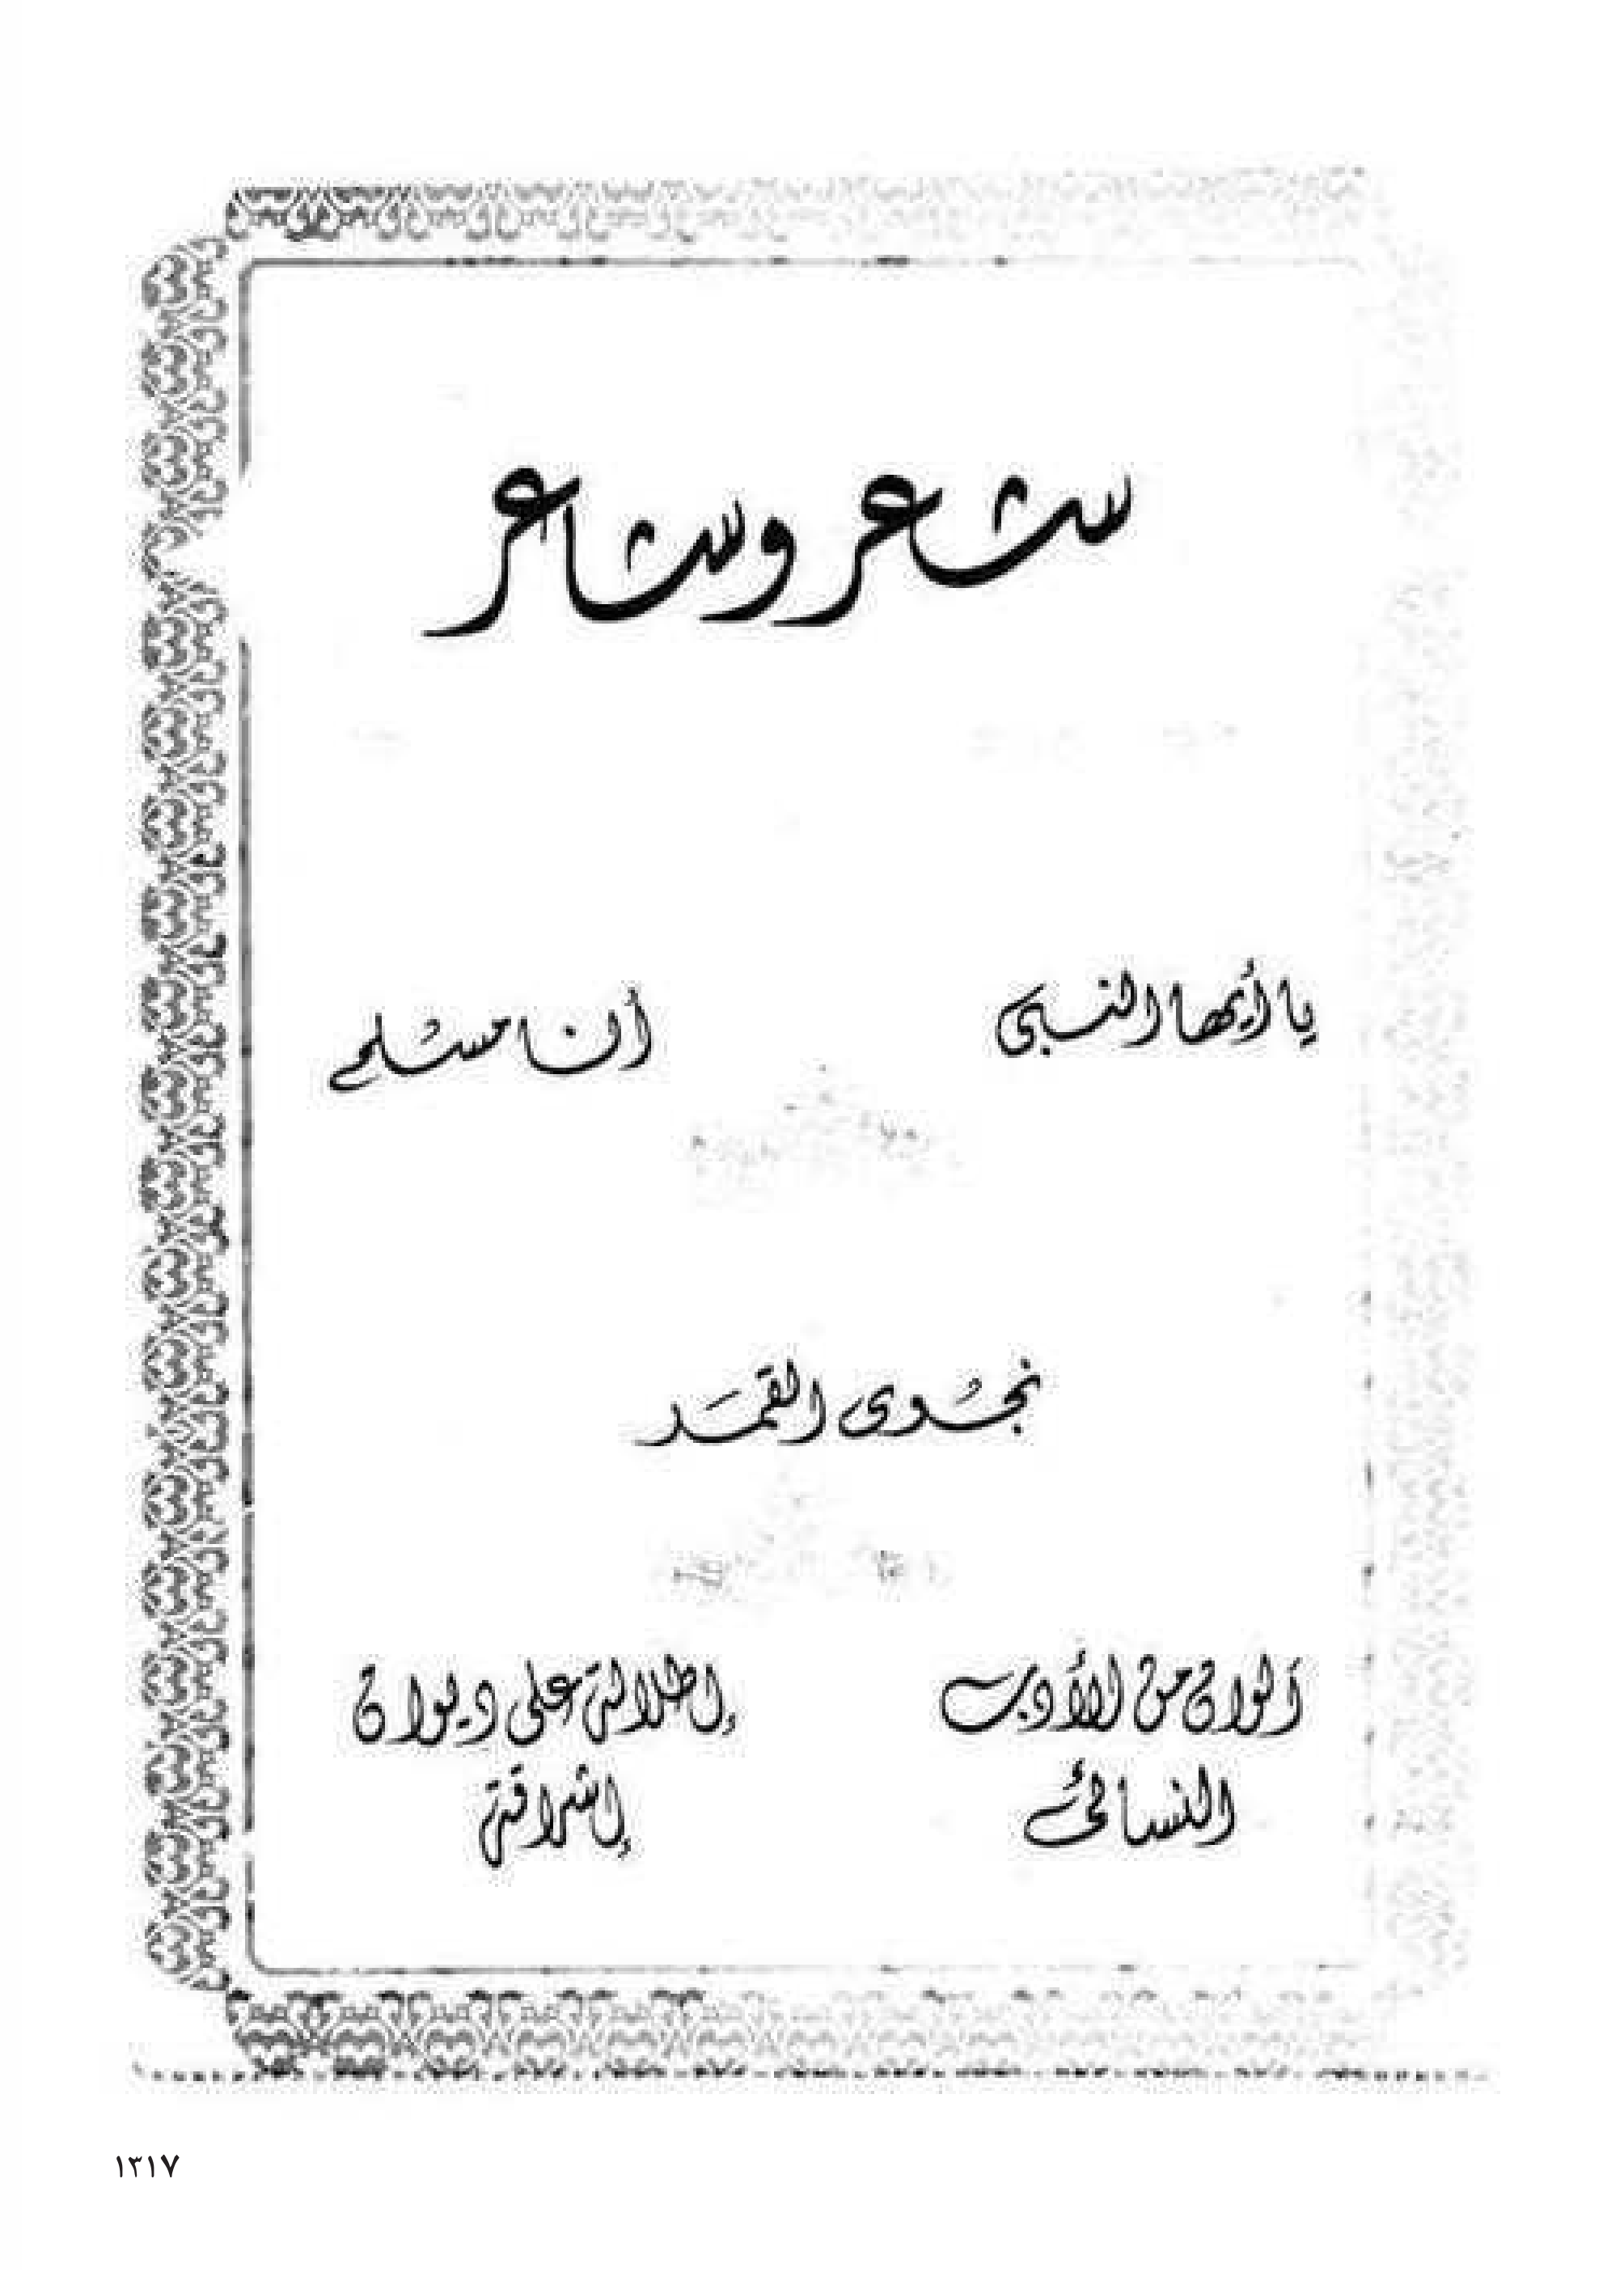 شعر وشاعر
يا أيها النبي
أنا مسلم
نجوى القمر
ألوان من الأدب
النسائى
إطلالة على ديوان
إشراقة
١٣١٧